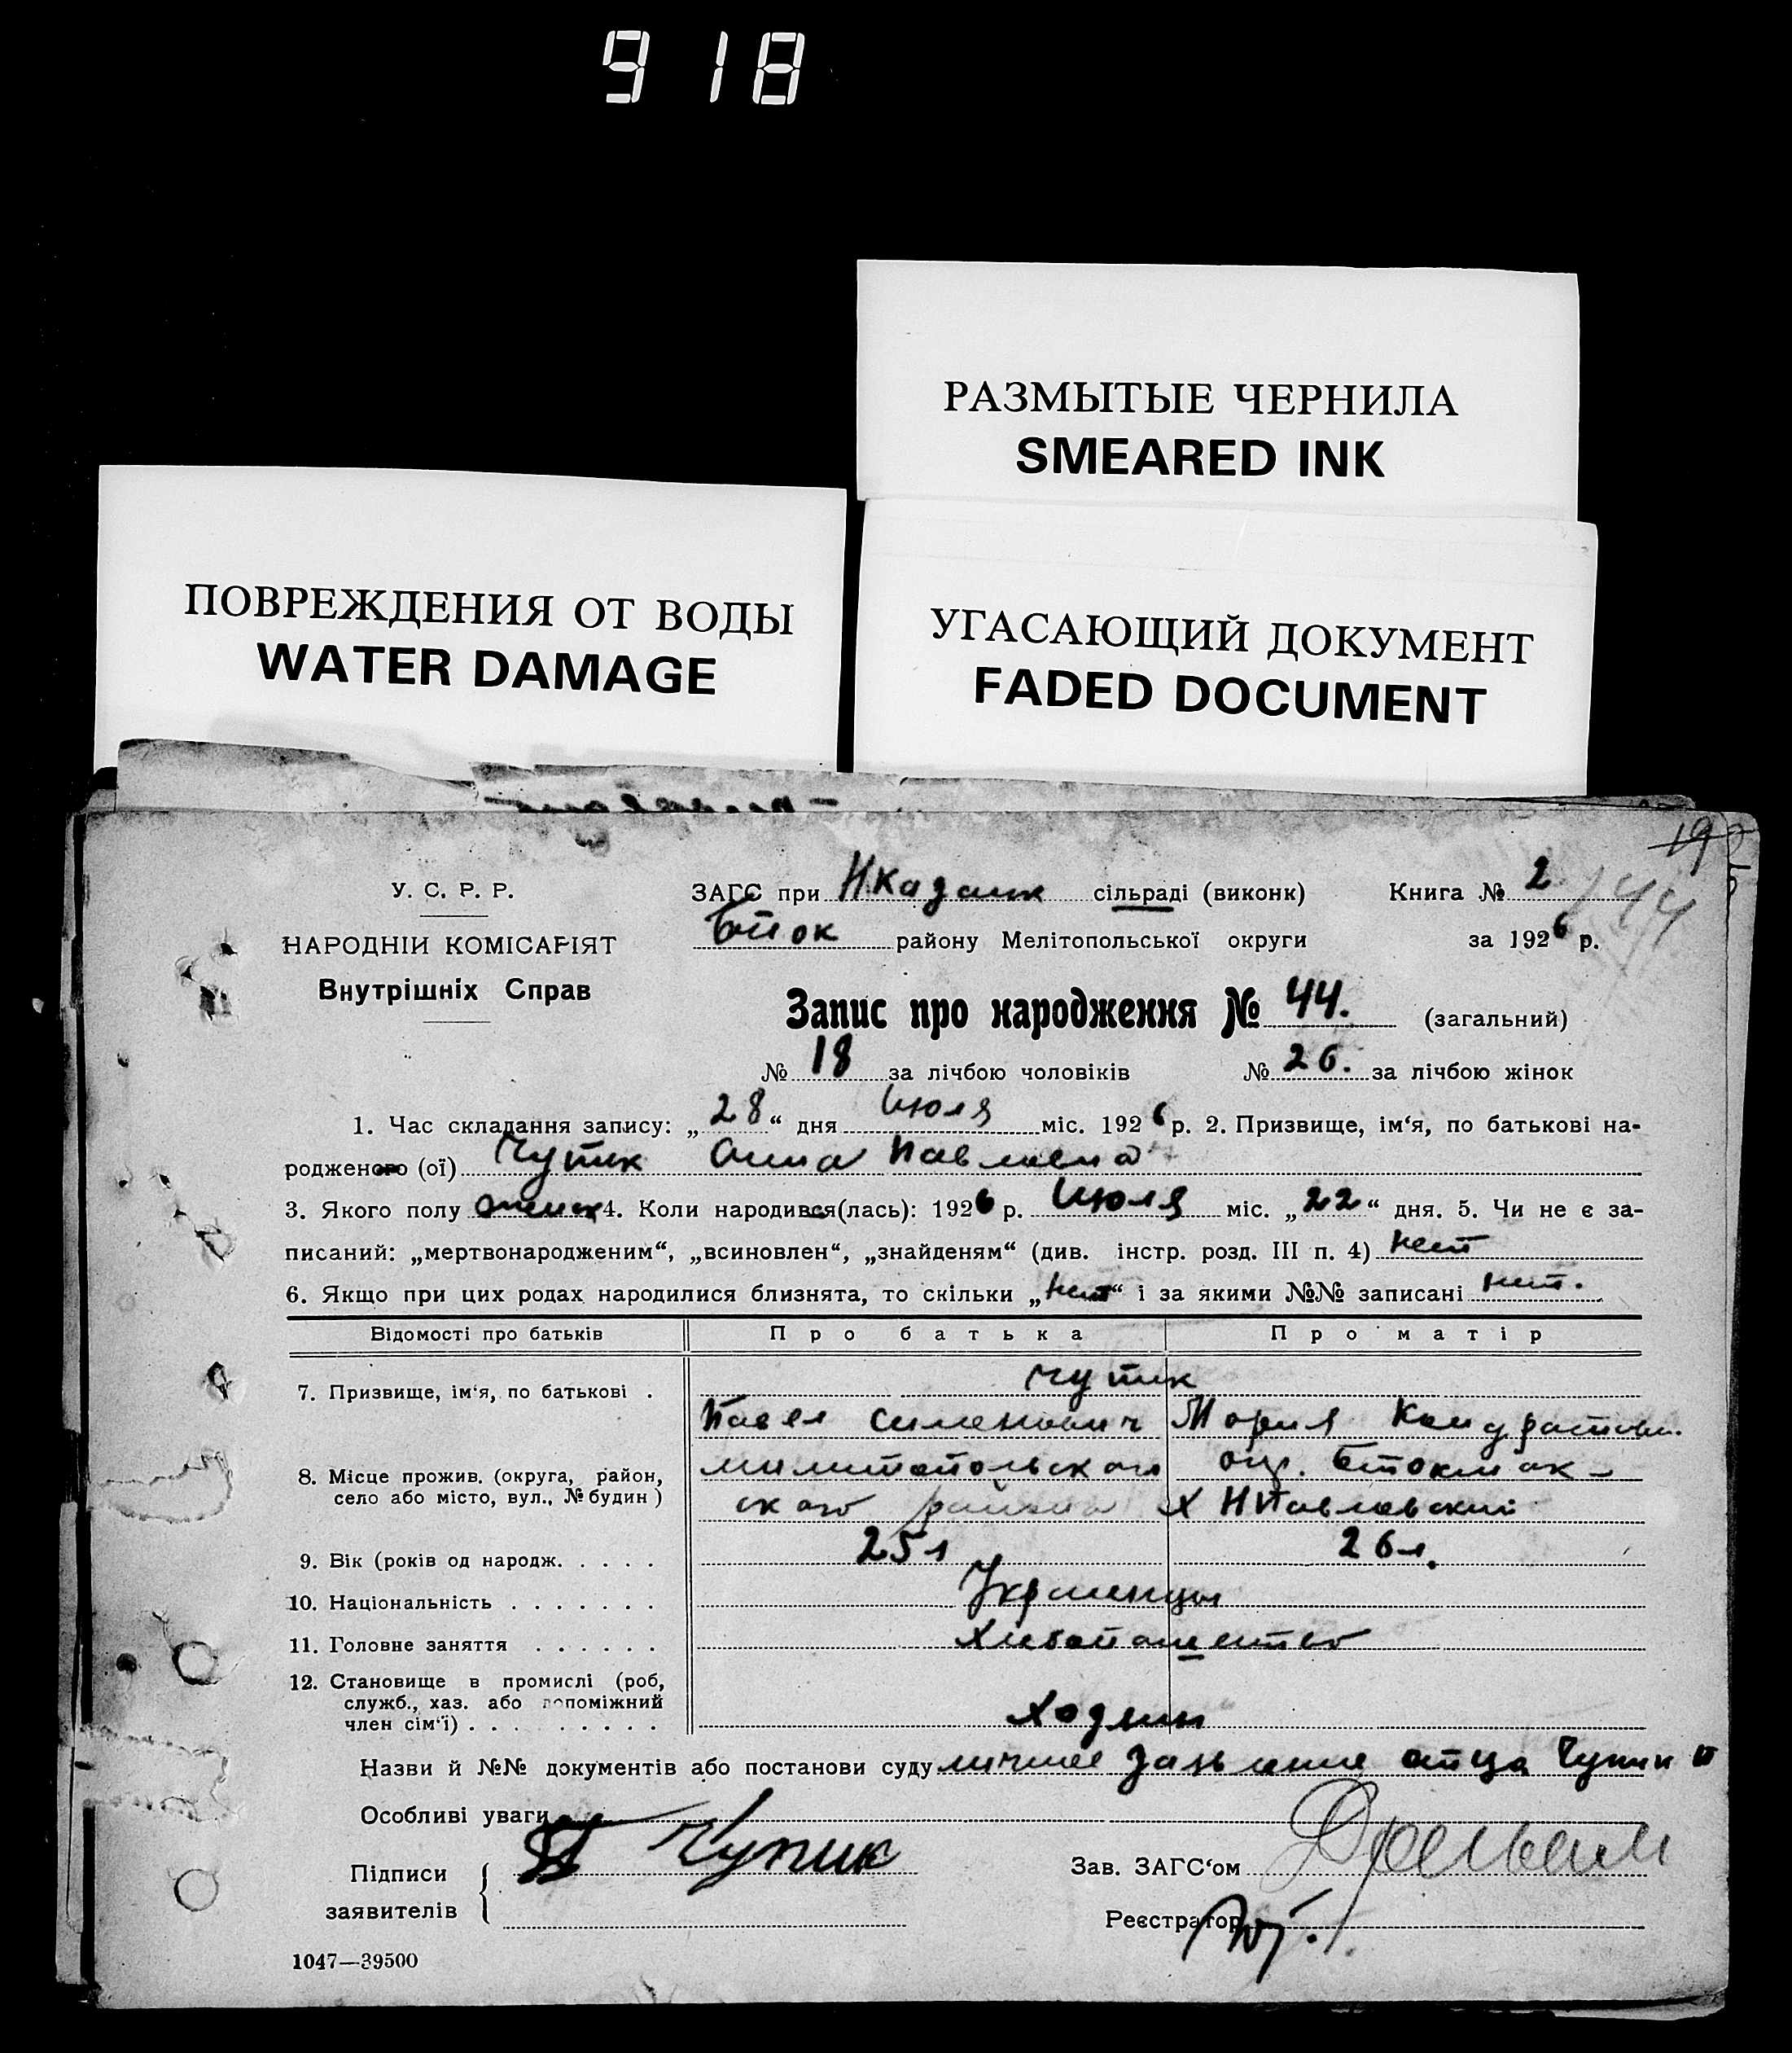 918
РАЗМЫТЫЕ ЧЕРНИЛА
SMEARED INK
ПОВРЕЖДЕНИЯ ОТ ВОДЫ
WATER DAMAGE
УГАСАЮЩИЙ ДОКУМЕНТ
FADED DOCUMENT
19
144
У. С. Р. Р.
НАРОДНІЙ КОМІСАРІЯТ
Внутрішніх Справ
ЗАГС при сільраді (виконк) Книга № 2
району Мелітопольської округи за 1926 р.
Запис про народження № 44. (загальний)
№ 18 за лічбою чоловіків № 26. за лічбою жінок
1. Час складання запису: „28“ дня Июля міс. 1926 р. 2. Призвище, ім‘я, по батькові на-
родженого (ої) Чупик Анна Павловна
3. Якого полу женск 4. Коли народився(лась): 1926 р. Июля міс. „22“ дня. 5. Чи не є за-
писаний: „мертвонародженим“, „всиновлен“, „знайденям“ (див. інстр. розд. III п. 4) нет
6. Якщо при цих родах народилися близнята, то скільки „нет“ і за якими №№ записані нет.
Відомості про батьків Про батька Про матір
7. Призвище, ім‘я, по батькові . Чупик
Павел Семенович Мария
8. Місце прожив. (округа, район,
село або місто, вул., № будин) окр.
ского района х Н Павловский
9. Вік (років од народж. . . . . 25 л 26 л.
10. Національність . . . . . . . Украинцы
11. Головне заняття . . . . . . Хлебопашество
12. Становище в промислі (роб,
служб., хаз. або допоміжний
член сім‘ї) . . . . . . . . .
Назви й №№ документів або постанови суду личное заявление отца Чупик П
Особливі уваги
Підписи
заявителів
Чупик
Зав. ЗАГС‘ом
Реєстратор
1047—39500